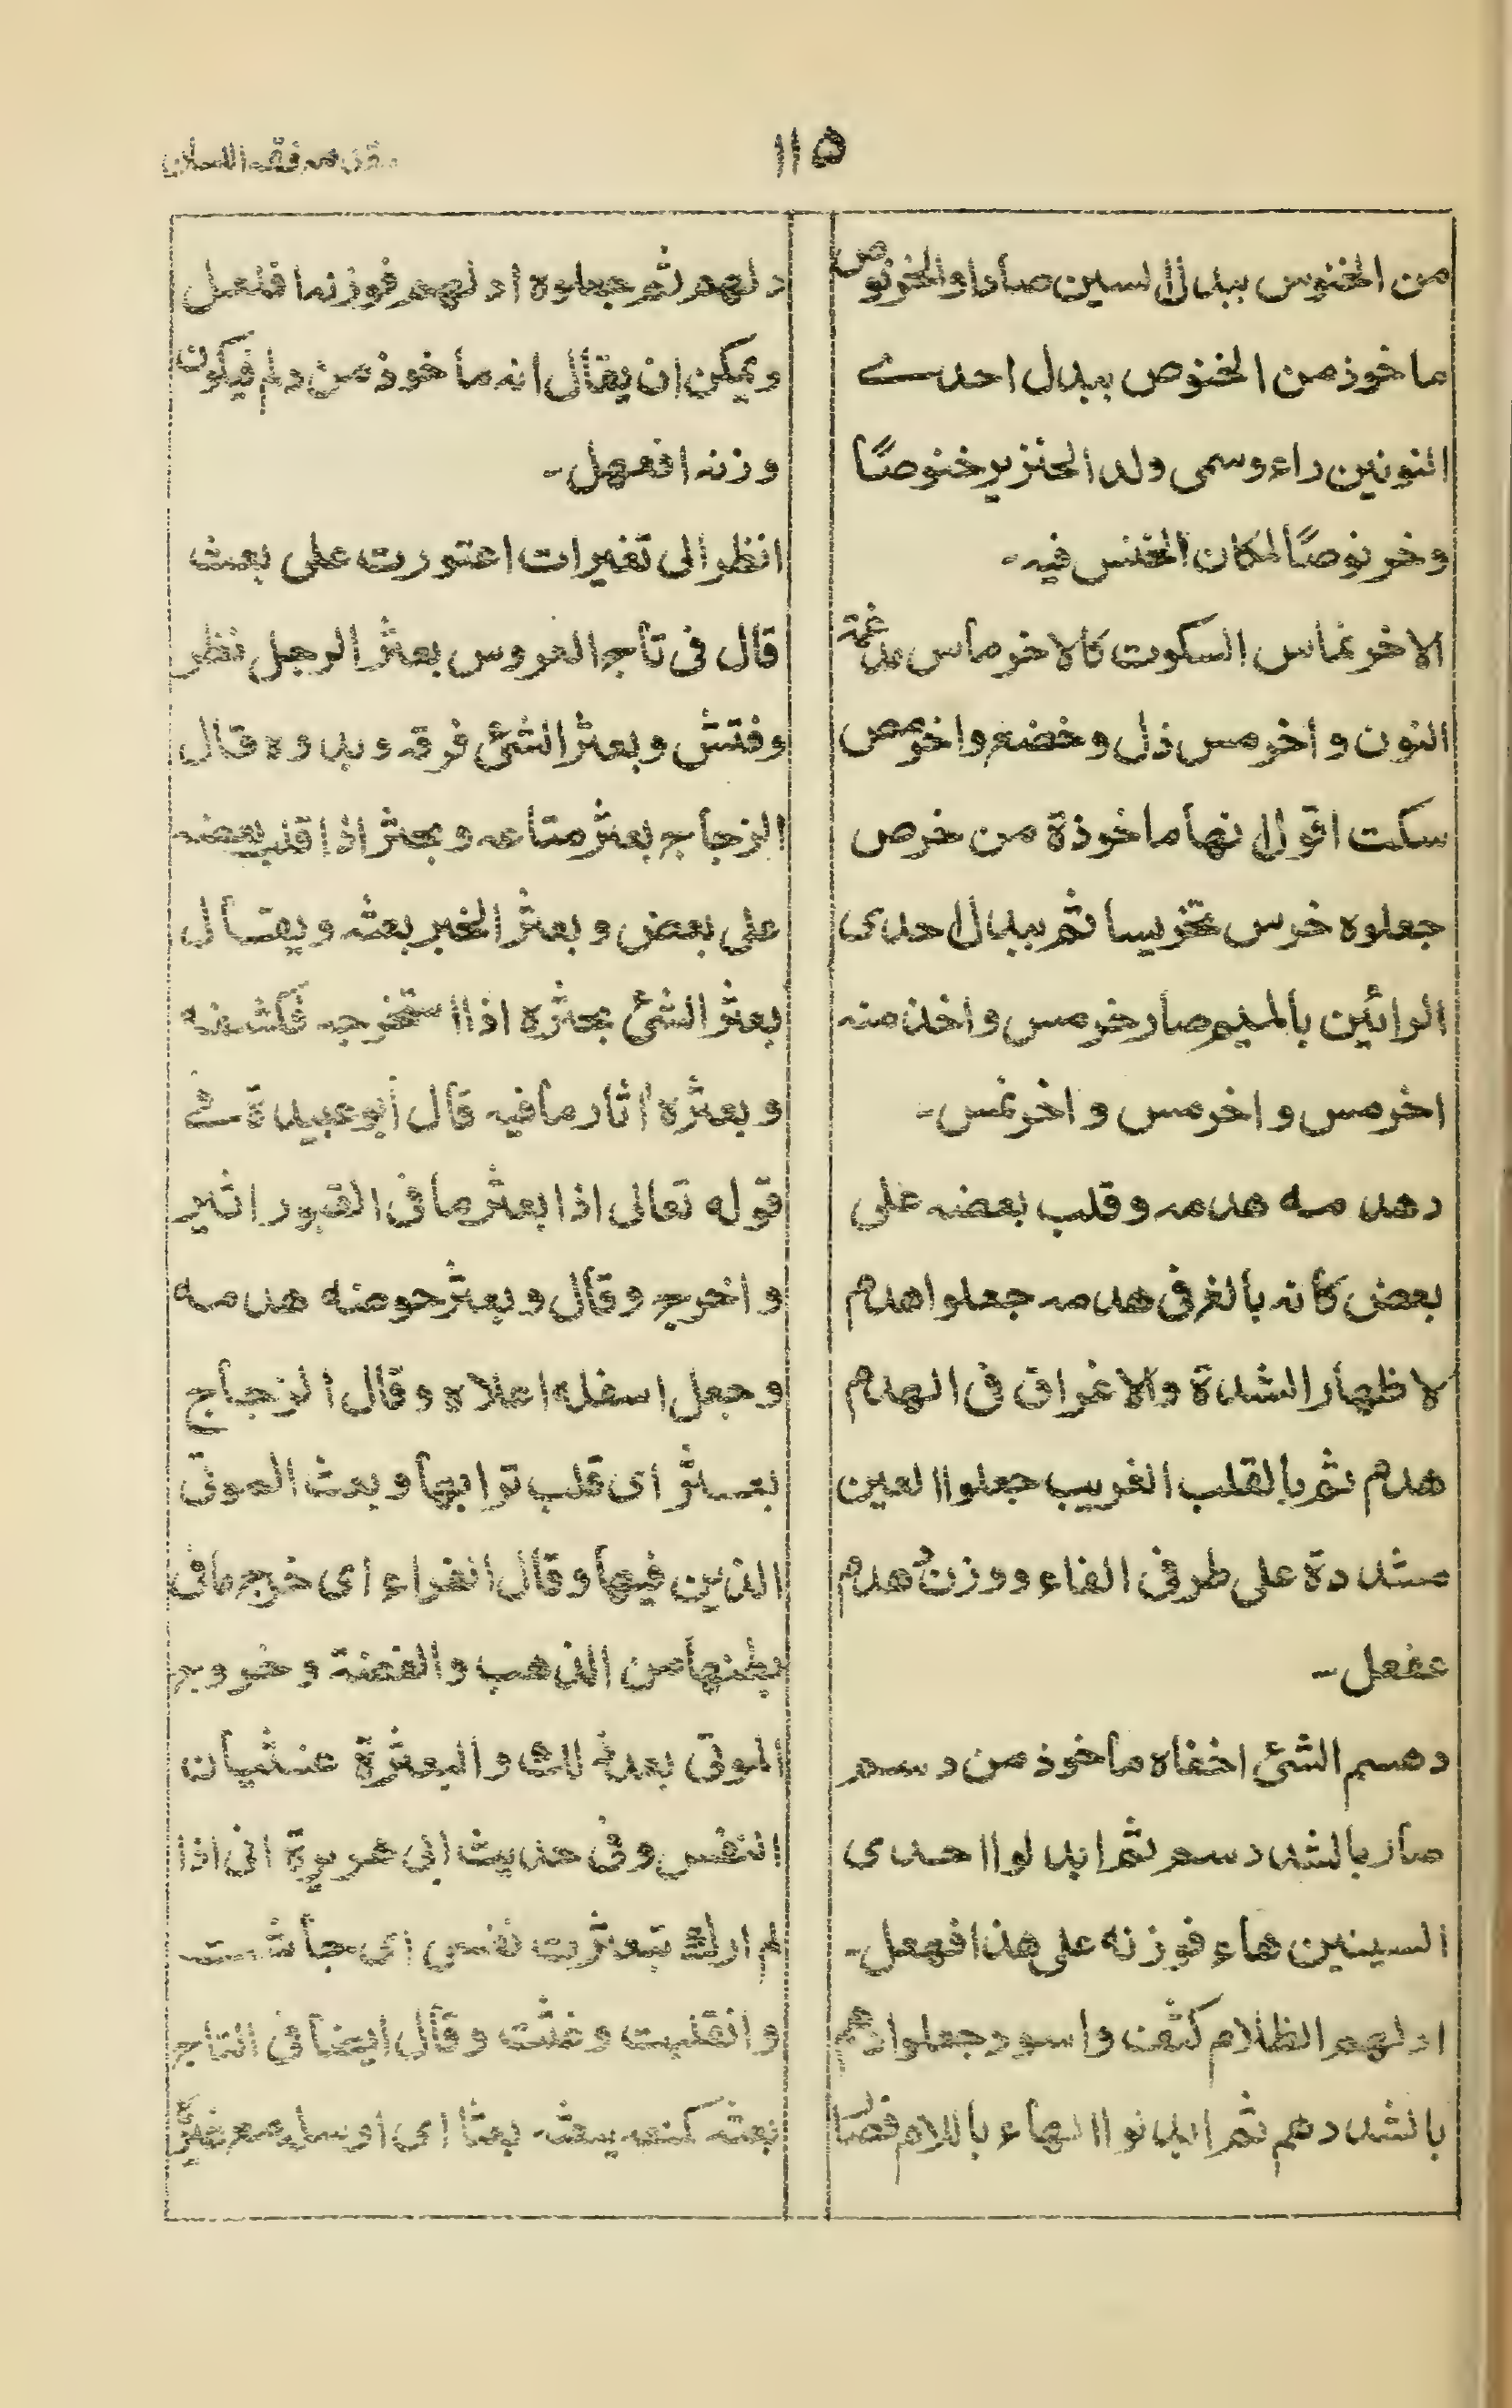 ۱۱۵
مقدمه فقه اللسان
من الخنوس ببدال السين صادا والخرنوص
ماخوذ من الخنوص ببدال احدے
النونين راء وسمى ولد الخنزير خنوصًا
وخرنوصًا لمكان الخنس فيه -
الاخرنماس السكوت كالاخرماس مدغمة
النون و اخرمس ذل وخضع واخرمص
سكت اقول انها ماخوذة من خرص
جعلوه خرس تخريسا ثم ببدال احدى
الرائين بالميم صار خرمس واخذ منه
اخرمس و اخرمس و اخرنمس -
دهدمه هدمه وقلب بعضه على
بعض كانه بالغ فى هدمه جعلوا هدم
لاظهار الشدة والاغراق فى الهدم
هدم ثم بالقلب الغريب جعلوا العين
مشددة على طرفى الفاء ووزن دهدم
عفعل -
دهسم الشئ اخفاه ماخوذ من دسم
صار بالشد دسم ثم ابدلوا احدى
السينين هاء فوزنه على هذا فهعل -
ادلهم الظلام كثف واسود جعلوا دهم
بالشد دهم ثم ابدلوا الهاء باللام فصار
دلهم ثم جعلوه ادلهم فوزنها فلعل
ويمكن ان يقال انه ماخوذ من دلم فيكون
وزنه افعهل -
انظر الى تغيرات اعتورت على بعث
قال فى تاج العروس بعثر الرجل نظر
وفتش وبعثر الشئ فرقه وبدده قال
الزجاج بعثر متاعه وبحثر اذا قلب بعضه
على بعض و بعثر الخبر بعثه ويقال
بعثر الشئ بحثره اذا استخرجه فكشفه
وبعثره اثار ما فيه قال ابو عبيدة فے
قوله تعالى اذا بعثر ما فى القبور اثير
و اخرج وقال و بعثر حوضه هدمه
وجعل اسفله اعلاه وقال الزجاج
بعثر اى قلب ترابها وبعث الموتى
الذين فيها وقال الفراء اى خرج مافى
بطنها من الذهب والفضة وخروج
الموتى بعد ذلك والبعثرة غثيان
النفس وفى حديث ابى هريرة انى اذا
لم ارك تبعثرت نفسى اى جاشت
وانقلبت وغثت وقال ايضا فى التاج
بعثه كمنعه يبعثه بعثا اى ارسله مع غيره